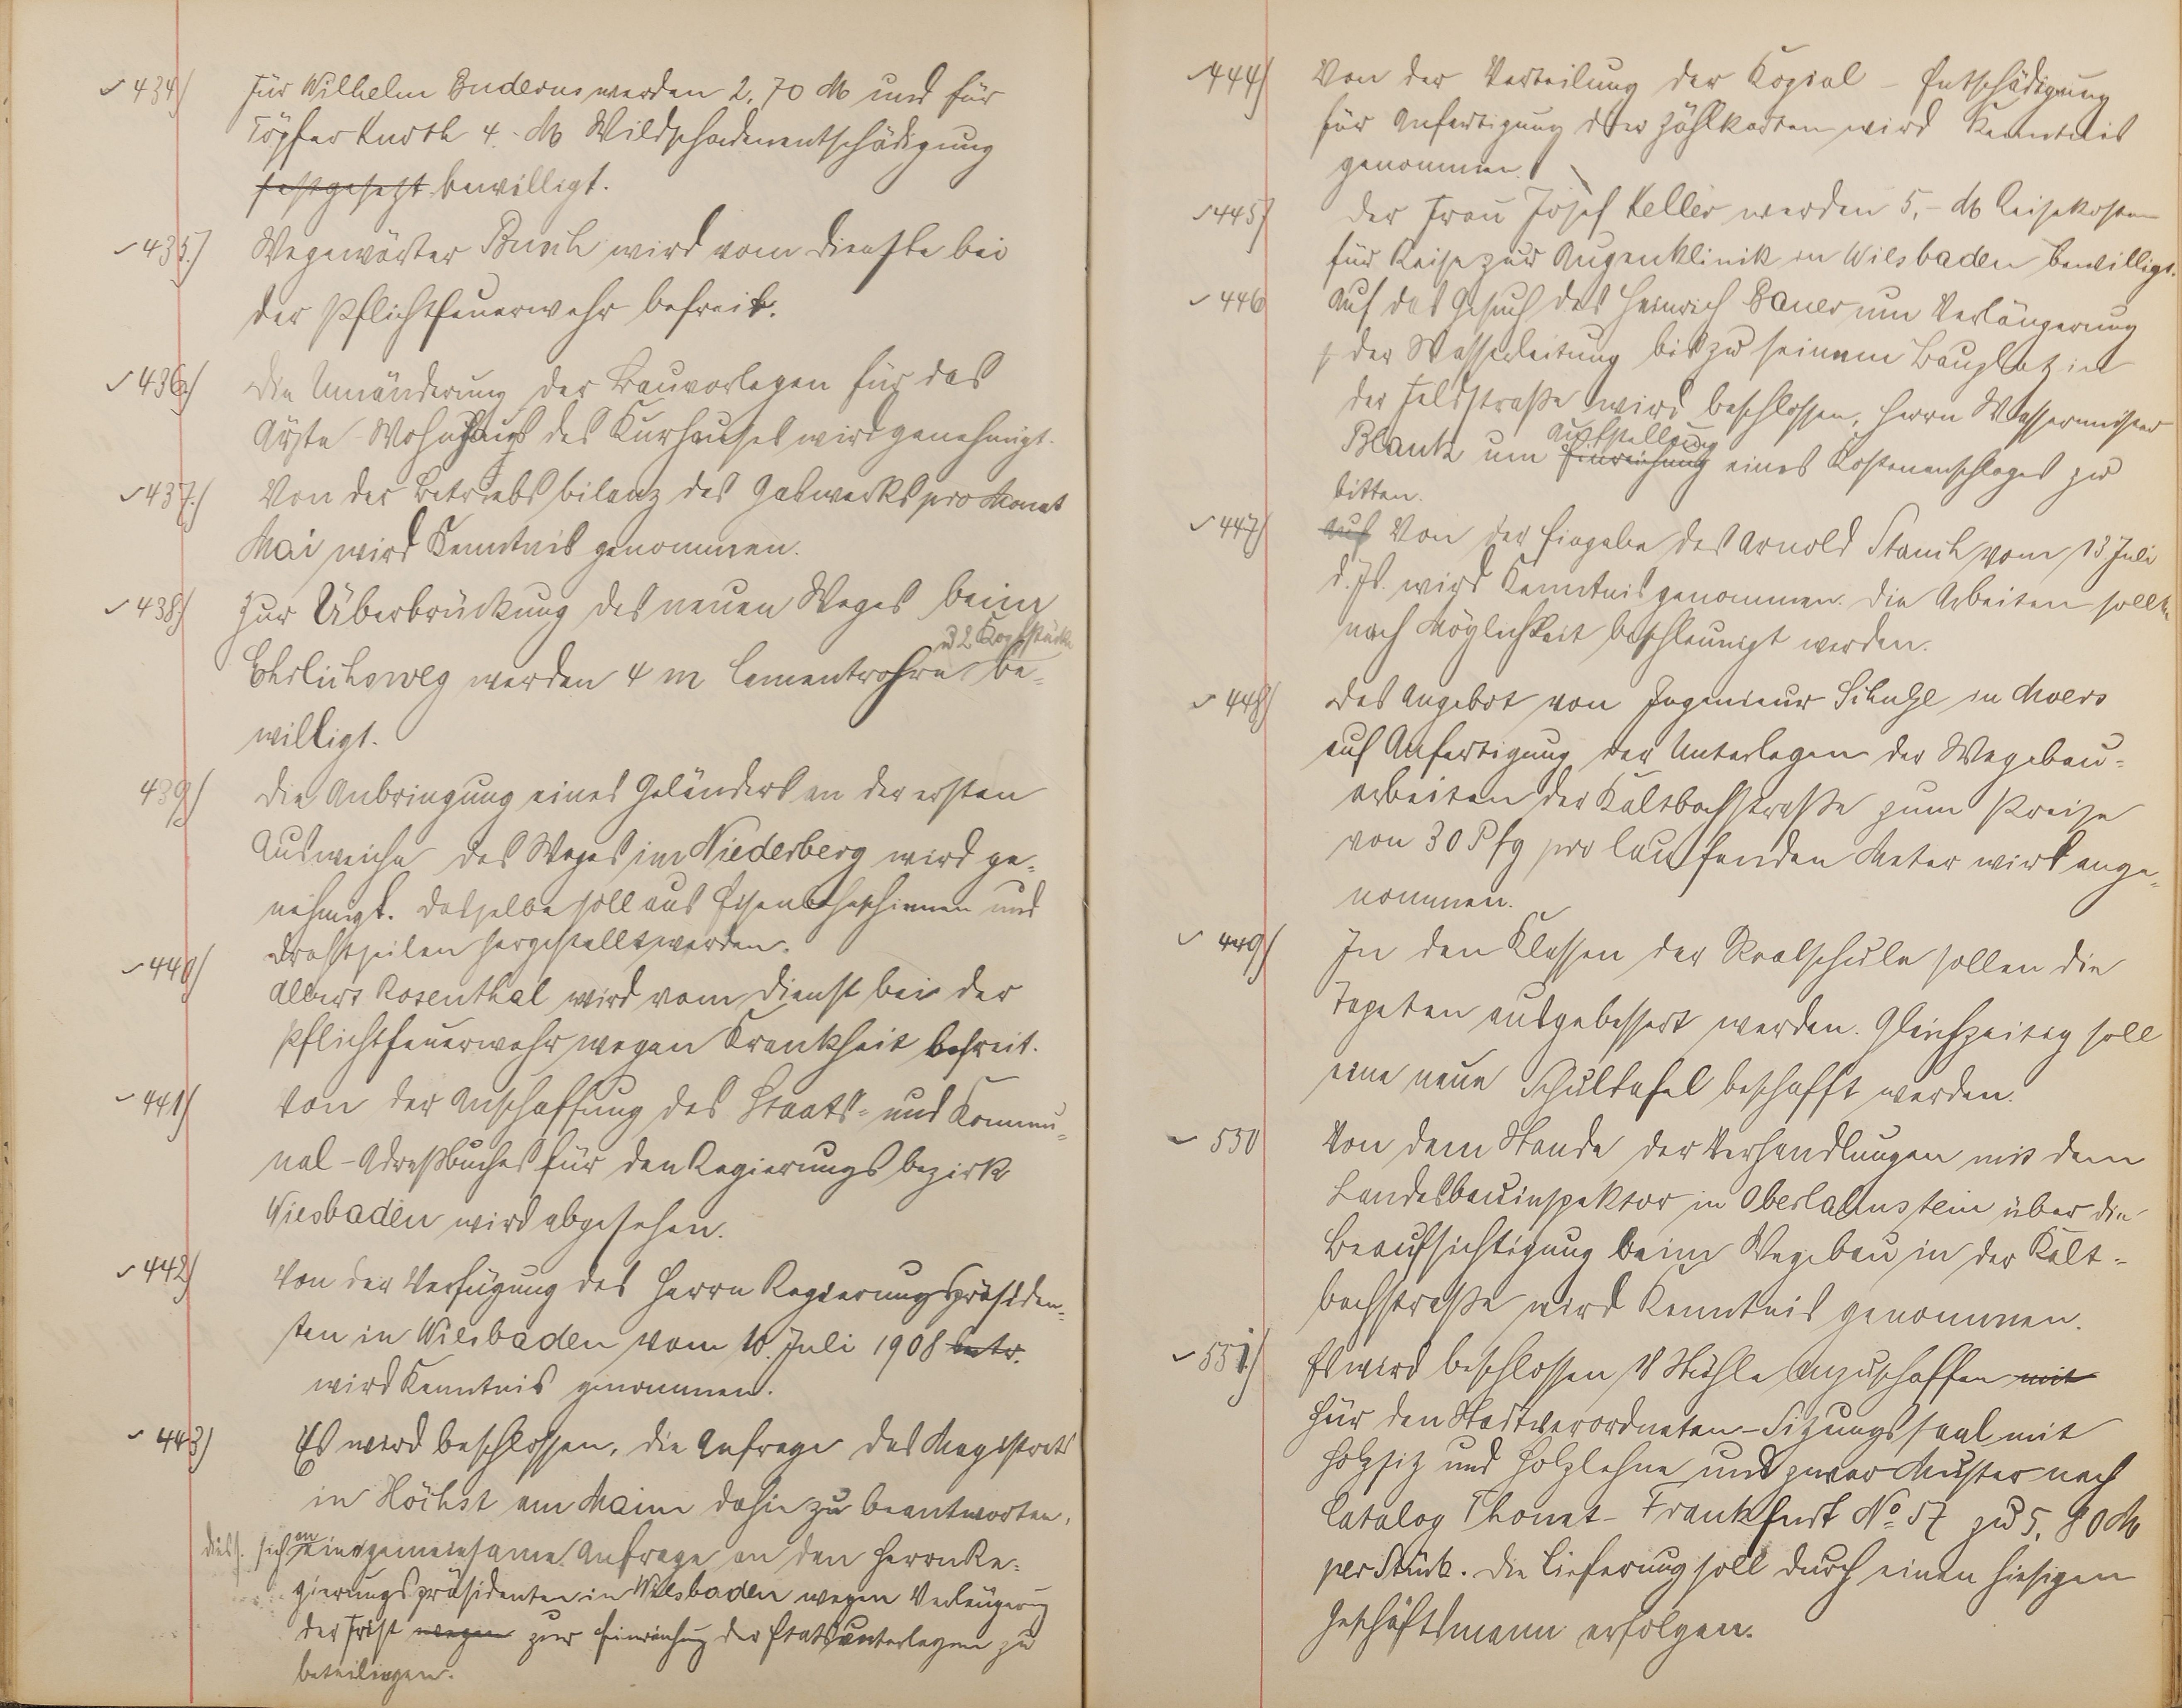 434) Für Wilhelm Buderus werden 2,70 M und für
Töpfer Kurth 4.- M Wildschadenentschädigung
festgesetzt bewilligt.
435.) Wegewärter Busch wird vom Dienste bei
der Pflichtfeuerwehr befreit.
436.) Die Umänderung der Bauvorlagen für das
Ärzte-Wohnhaus des Kurhauses wird genehmigt.
437.) Von der Betriebsbilanz des Gaswerks pro Monat
Mai wird Kenntnis genommen.
438) Zur Überbrückung des neuen Weges beim
u 2 Kopfstücke
Ehrlichsweg werden 4 m Cementrohre be-
willigt.
439) Die Anbringung eines Geländers an der ersten
Ausweiche des Weges im Niederberg wird ge-
nehmigt. Dasselbe soll aus Eisenbahnschienen und
Drahtseilen hergestellt werden.
440) Albert Rosenthal wird vom Dienst bei der
Pflichtfeuerwehr wegen Krankheit befreit.
441) Von der Anschaffung des Staats- und Kommu-
nal-Adreßbuches für den Regierungsbezirk
Wiesbaden wird abgesehen.
442) Von der Verfügung des Herrn Regierungspräsiden-
ten in Wiesbaden vom 10. Juli 1908 betr.
wird Kenntnis genommen.
443) Es wird beschlossen, die Anfrage des Magistrats
in Höchst am Main dahin zu beantworten,
sich an
eine gemeinsame Anfrage an den Herrn Re-
gierungspräsidenten in Wiesbaden wegen Verlängerung
der Frist wegen zur Einreichung der Etatsunterlagen zu
beteiligen.
444) Von der Verteilung der Kopial-Entschädigung
für Anfertigung der Zählkarten wird Kenntnis
genommen.
445) Der Frau Josef Keller werden 5,- M Reisekosten
für Reise zur Augenklinik in Wiesbaden bewilligt.
446 Auf das Gesuch des Heinrich Bauer um Verlängerung
der Wasserleitung bis zu seinem Bauplatz in
der Feldstraße wird beschlossen, Herrn Wassermeister
Aufstellung
Blank um Einreichung eines Kostenanschlages zu
bitten.
447) Auf Von der Eingabe des Arnold Stauch vom 13 Juli
d. Js. wird Kenntnis genommen. Die Arbeiten sollen
nach Möglichkeit beschleunigt werden.
448) Das Angebot von Ingenieur Schulze in Moers
auf Anfertigung der Unterlagen der Wegebau-
arbeiten der Kaltbachstraße zum Preise
von 30 Pfg pro laufenden Meter wird ange-
nommen.
449) In den Klassen der Realschule sollen die
Tapeten ausgebessert werden. Gleichzeitig soll
eine neue Schultafel beschafft werden.
550 Von dem Stande der Verhandlungen mit dem
Landesbauinspektor in Oberlahnstein über die
Beaufsichtigung beim Wegebau in der Kalt-
bachstraße wird Kenntnis genommen.
551.) Es wird beschlossen 18 Stühle anzuschaffen mit
für den Stadtverordneten-Sitzungssaal mit
Holzsitz und Holzlehne und zwar Muster nach
Catalog Thonet-Frankfurt No 57 zu 5,80 M
per Stück. Die Lieferung soll durch einen hiesigen
Geschäftsmann erfolgen.